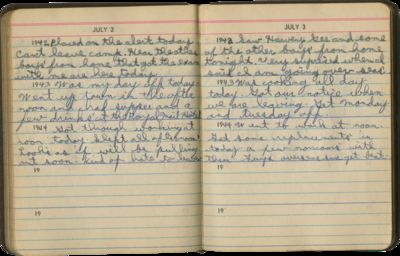 JULY 2
1942 Placed on the alert today
Can't leave camp. Hear the other
boys from home that got the exam
with me are here today.
1943 Was my day off today.
Went up town in the after
noon and had supper and a
few drinks at the Royal
1944 Got through working at
noon today. Slept all afternoon.
Looks as if will be pulling
out soon. Kind of hate to
19
19
JULY 3
1942 Saw Harvey Gee and some
of the other boys from home
tonight. Very surprised when I
said I am going over seas
1943 Was cooking all day
today. Got our notice when
we are leaving. Get Monday
and Tuesday off.
1944 Went to work at noon.
Got some replacements in
today a few noncoms with
them. Guys overseas get beat.
19
19